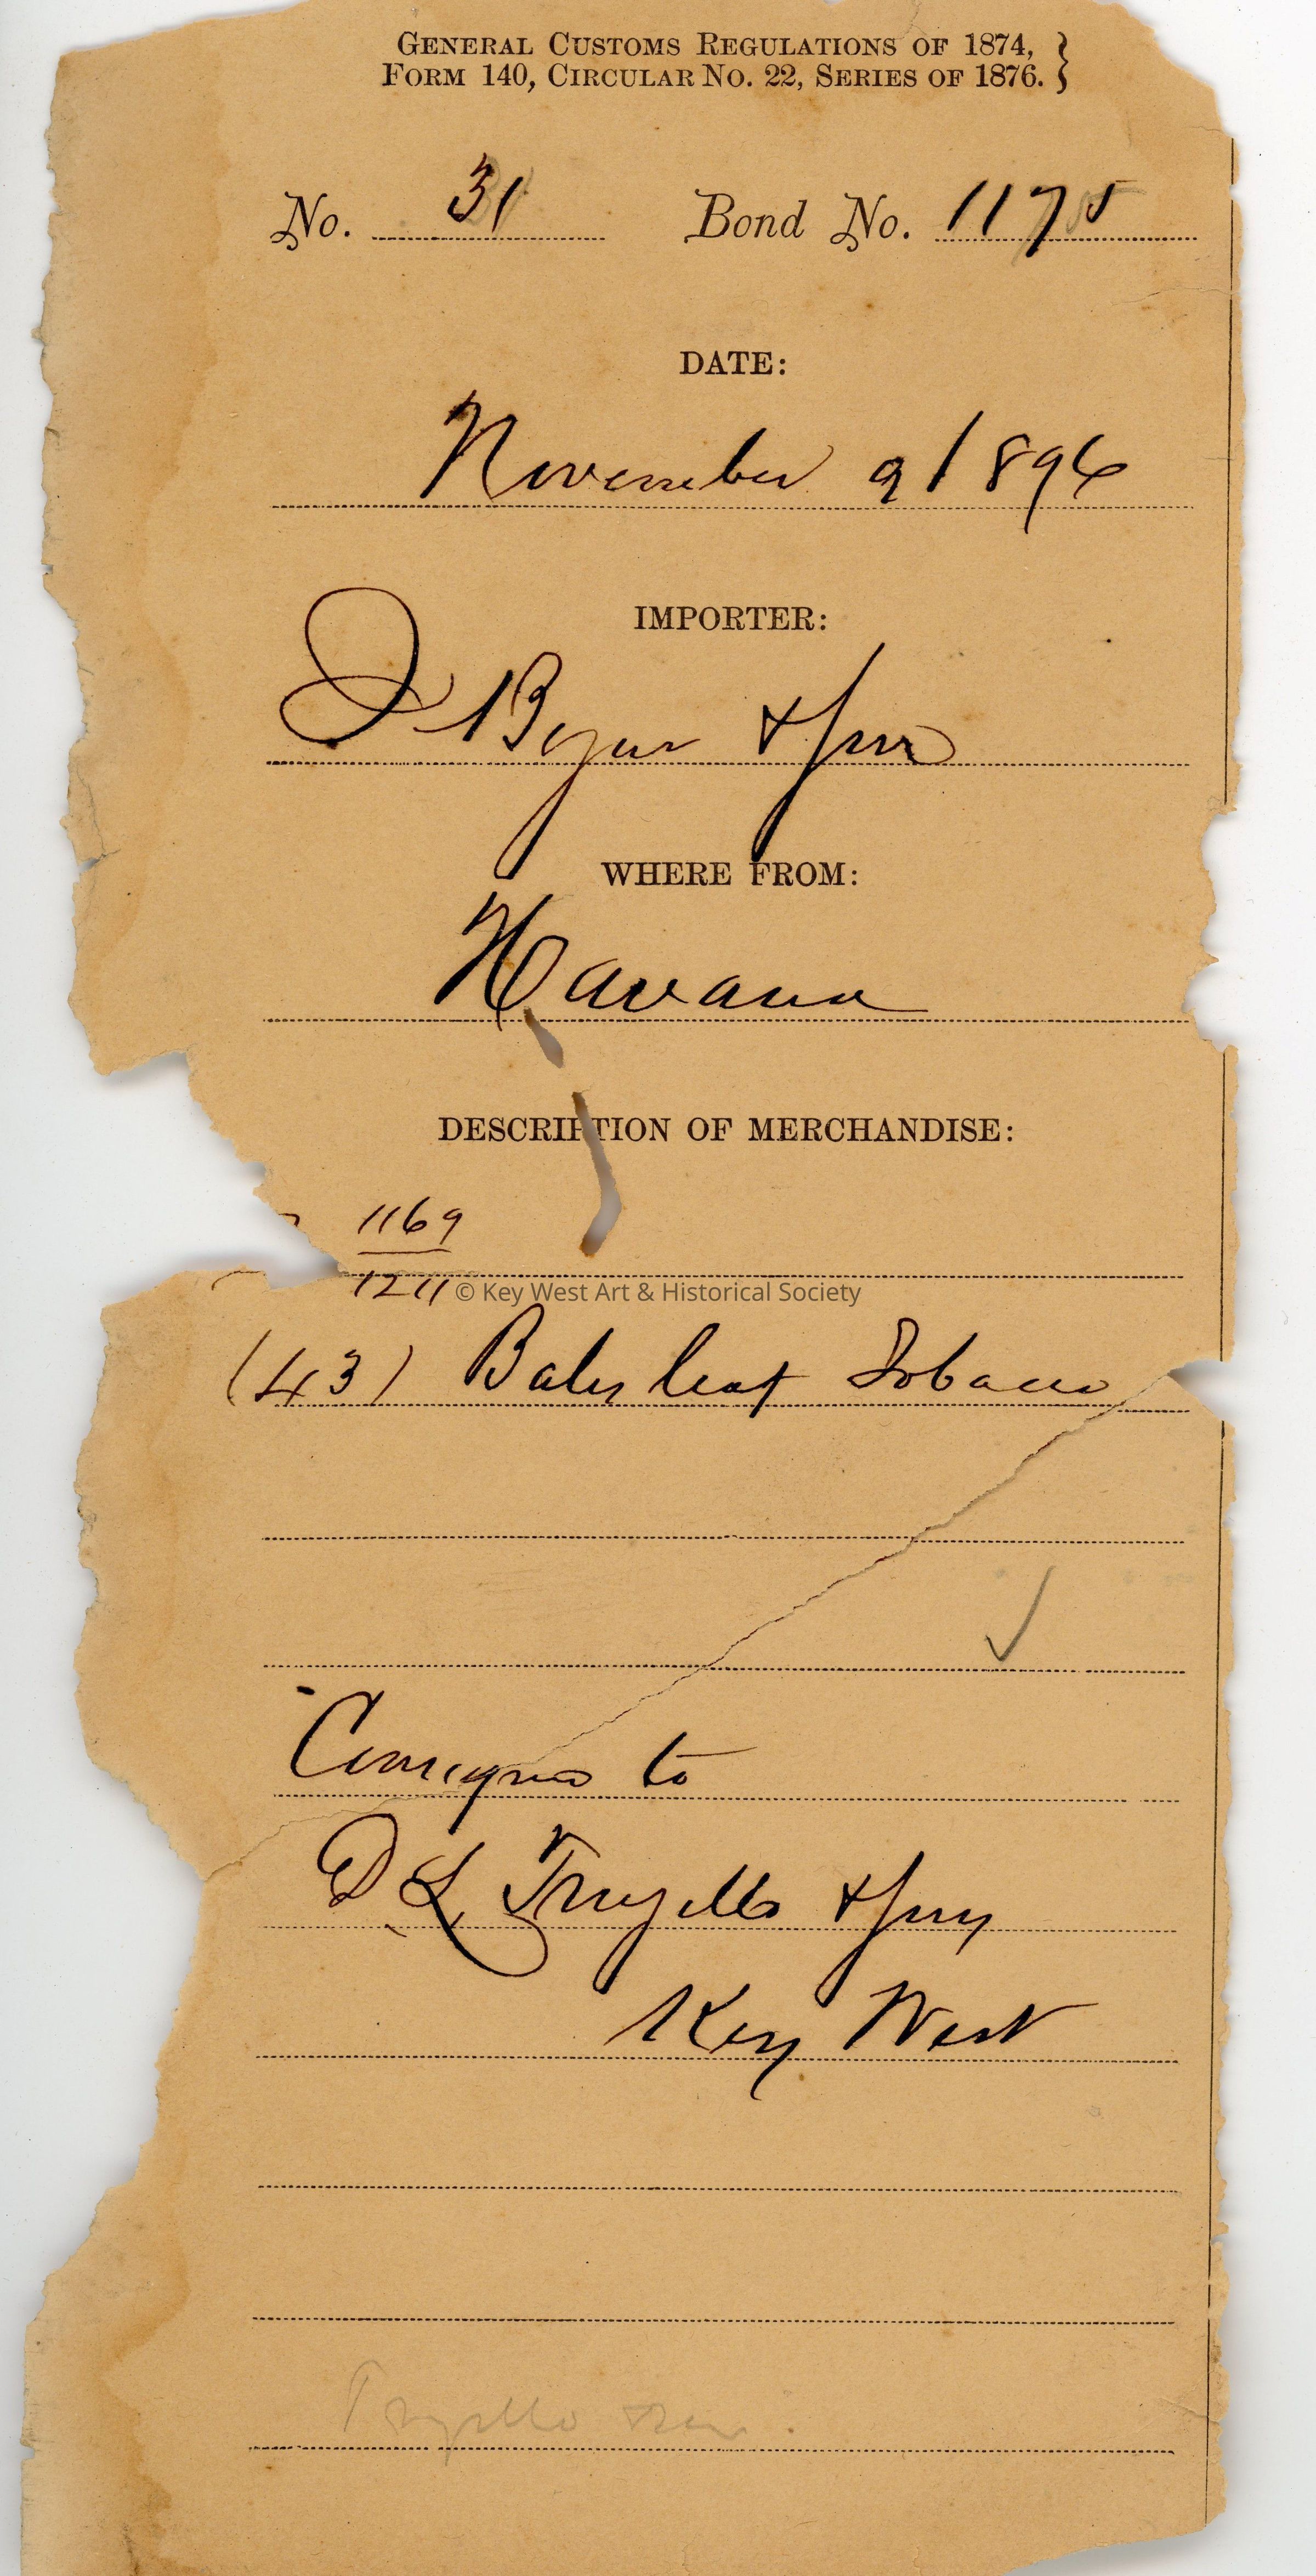 GENERAL CUSTOMS REGULATIONS OF 1874,
FORM 140, CIRCULAR No. 22, SERIES OF 1876.
No. 31 Bond No. 1175
DATE:
November 9 1896
IMPORTER:
& Son
WHERE FROM:
Havana
DESCRIPTION OF MERCHANDISE:
1169
1211
© Key West Art & Historical Society
(43) Bales leaf Tobacco
to
D L Trujillo & Sons
Key West
Trujillo & Sons